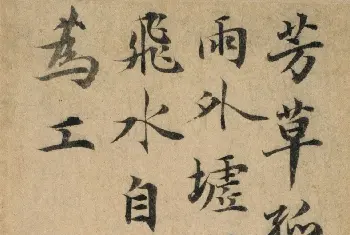 芳草孤
雨外墟
飛水自
為工